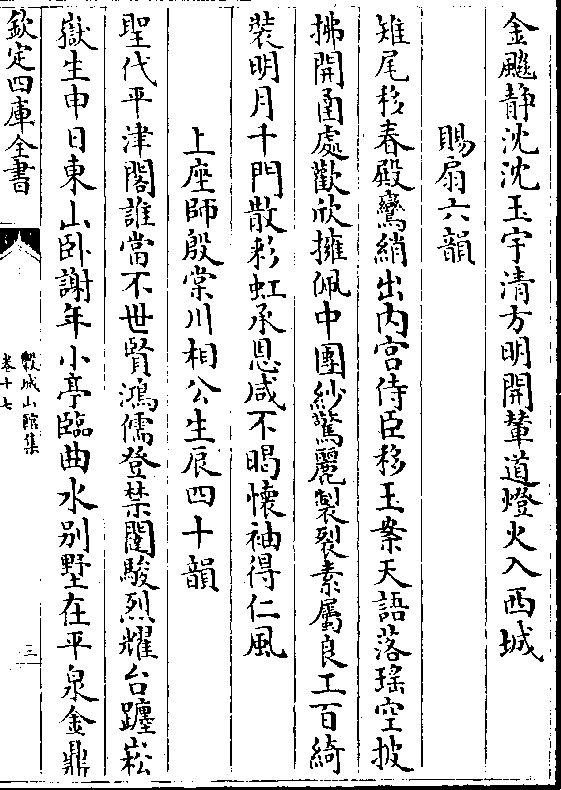 金飈静沈沈玉宇清方明開輦道燈火入西城
賜扇六韻
雉尾移春殿鸞綃出内宫侍臣移玉案天語落瑤空披
拂開函處歡欣擁佩中團紗驚麗製裂素屬良工百綺
裝明月千門散彩虹承恩咸不暍懷袖得仁風
上座師殷棠川相公生辰四十韻
聖代平津閣誰當不世賢鴻儒登禁闥駿烈耀台躔崧
嶽生申日東山卧謝年小亭臨曲水别墅在平泉金鼎
欽定四庫全書
穀城山館集
卷十七
三